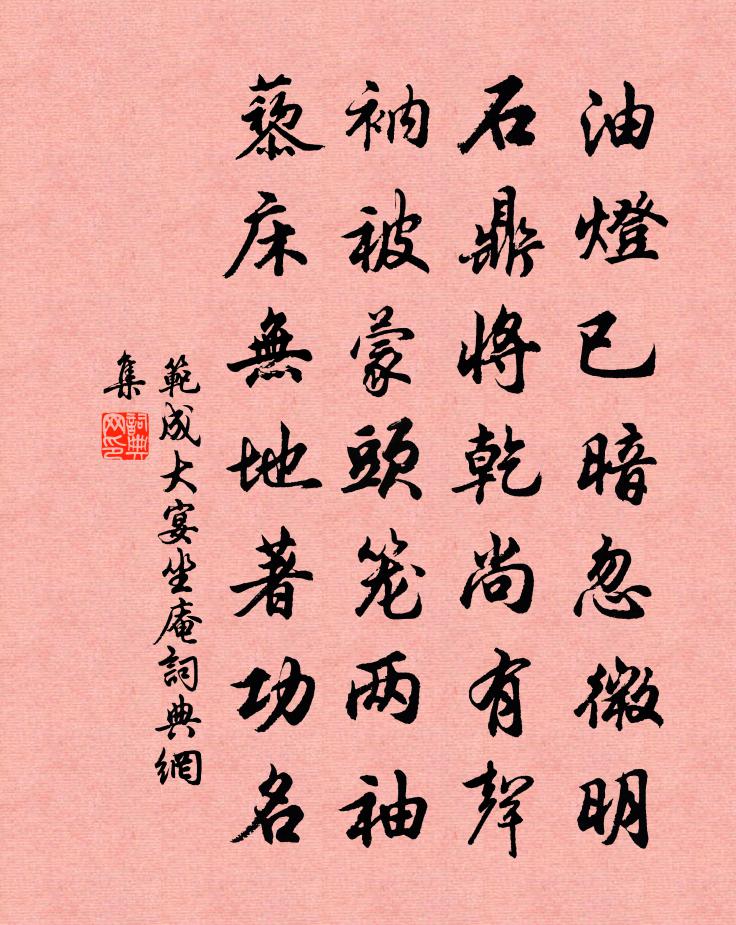 油燈已暗忽微明
石鼎將乾尚有聲
衲被蒙頭笼两袖
藜床無地著功名
範成大宴坐庵詞典網
集
詞典
网印